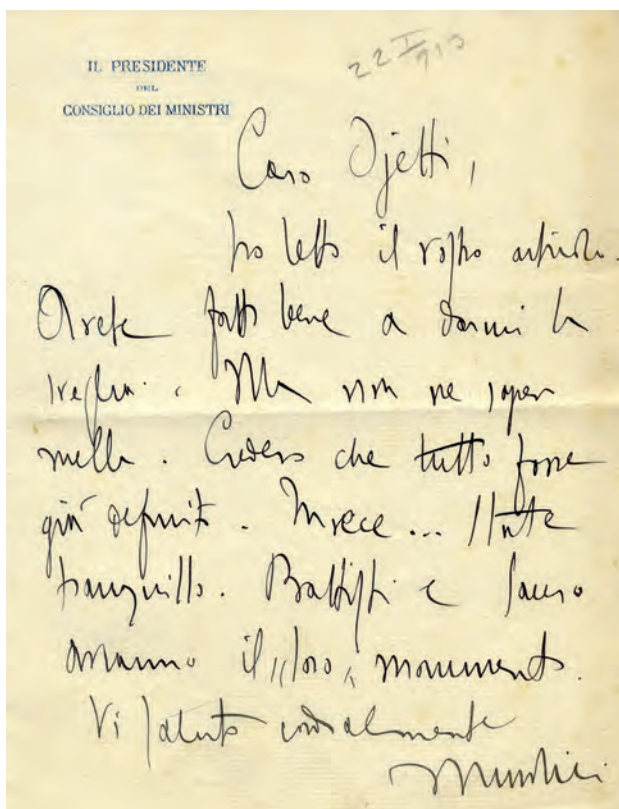 IL PRESIDENTE
DEL
CONSIGLIO DEI MINISTRI
22 I
Caro Ojetti,
ho letto il vostro articolo.
Avete fatto bene a darmi la
sveglia. Ma non ne sapevo
nulla. Credevo che tutto fosse
già definito. Invece... State
tranquillo. Battisti e Sauro
avranno il "loro" monumento.
Vi saluto cordialmente
Mussolini